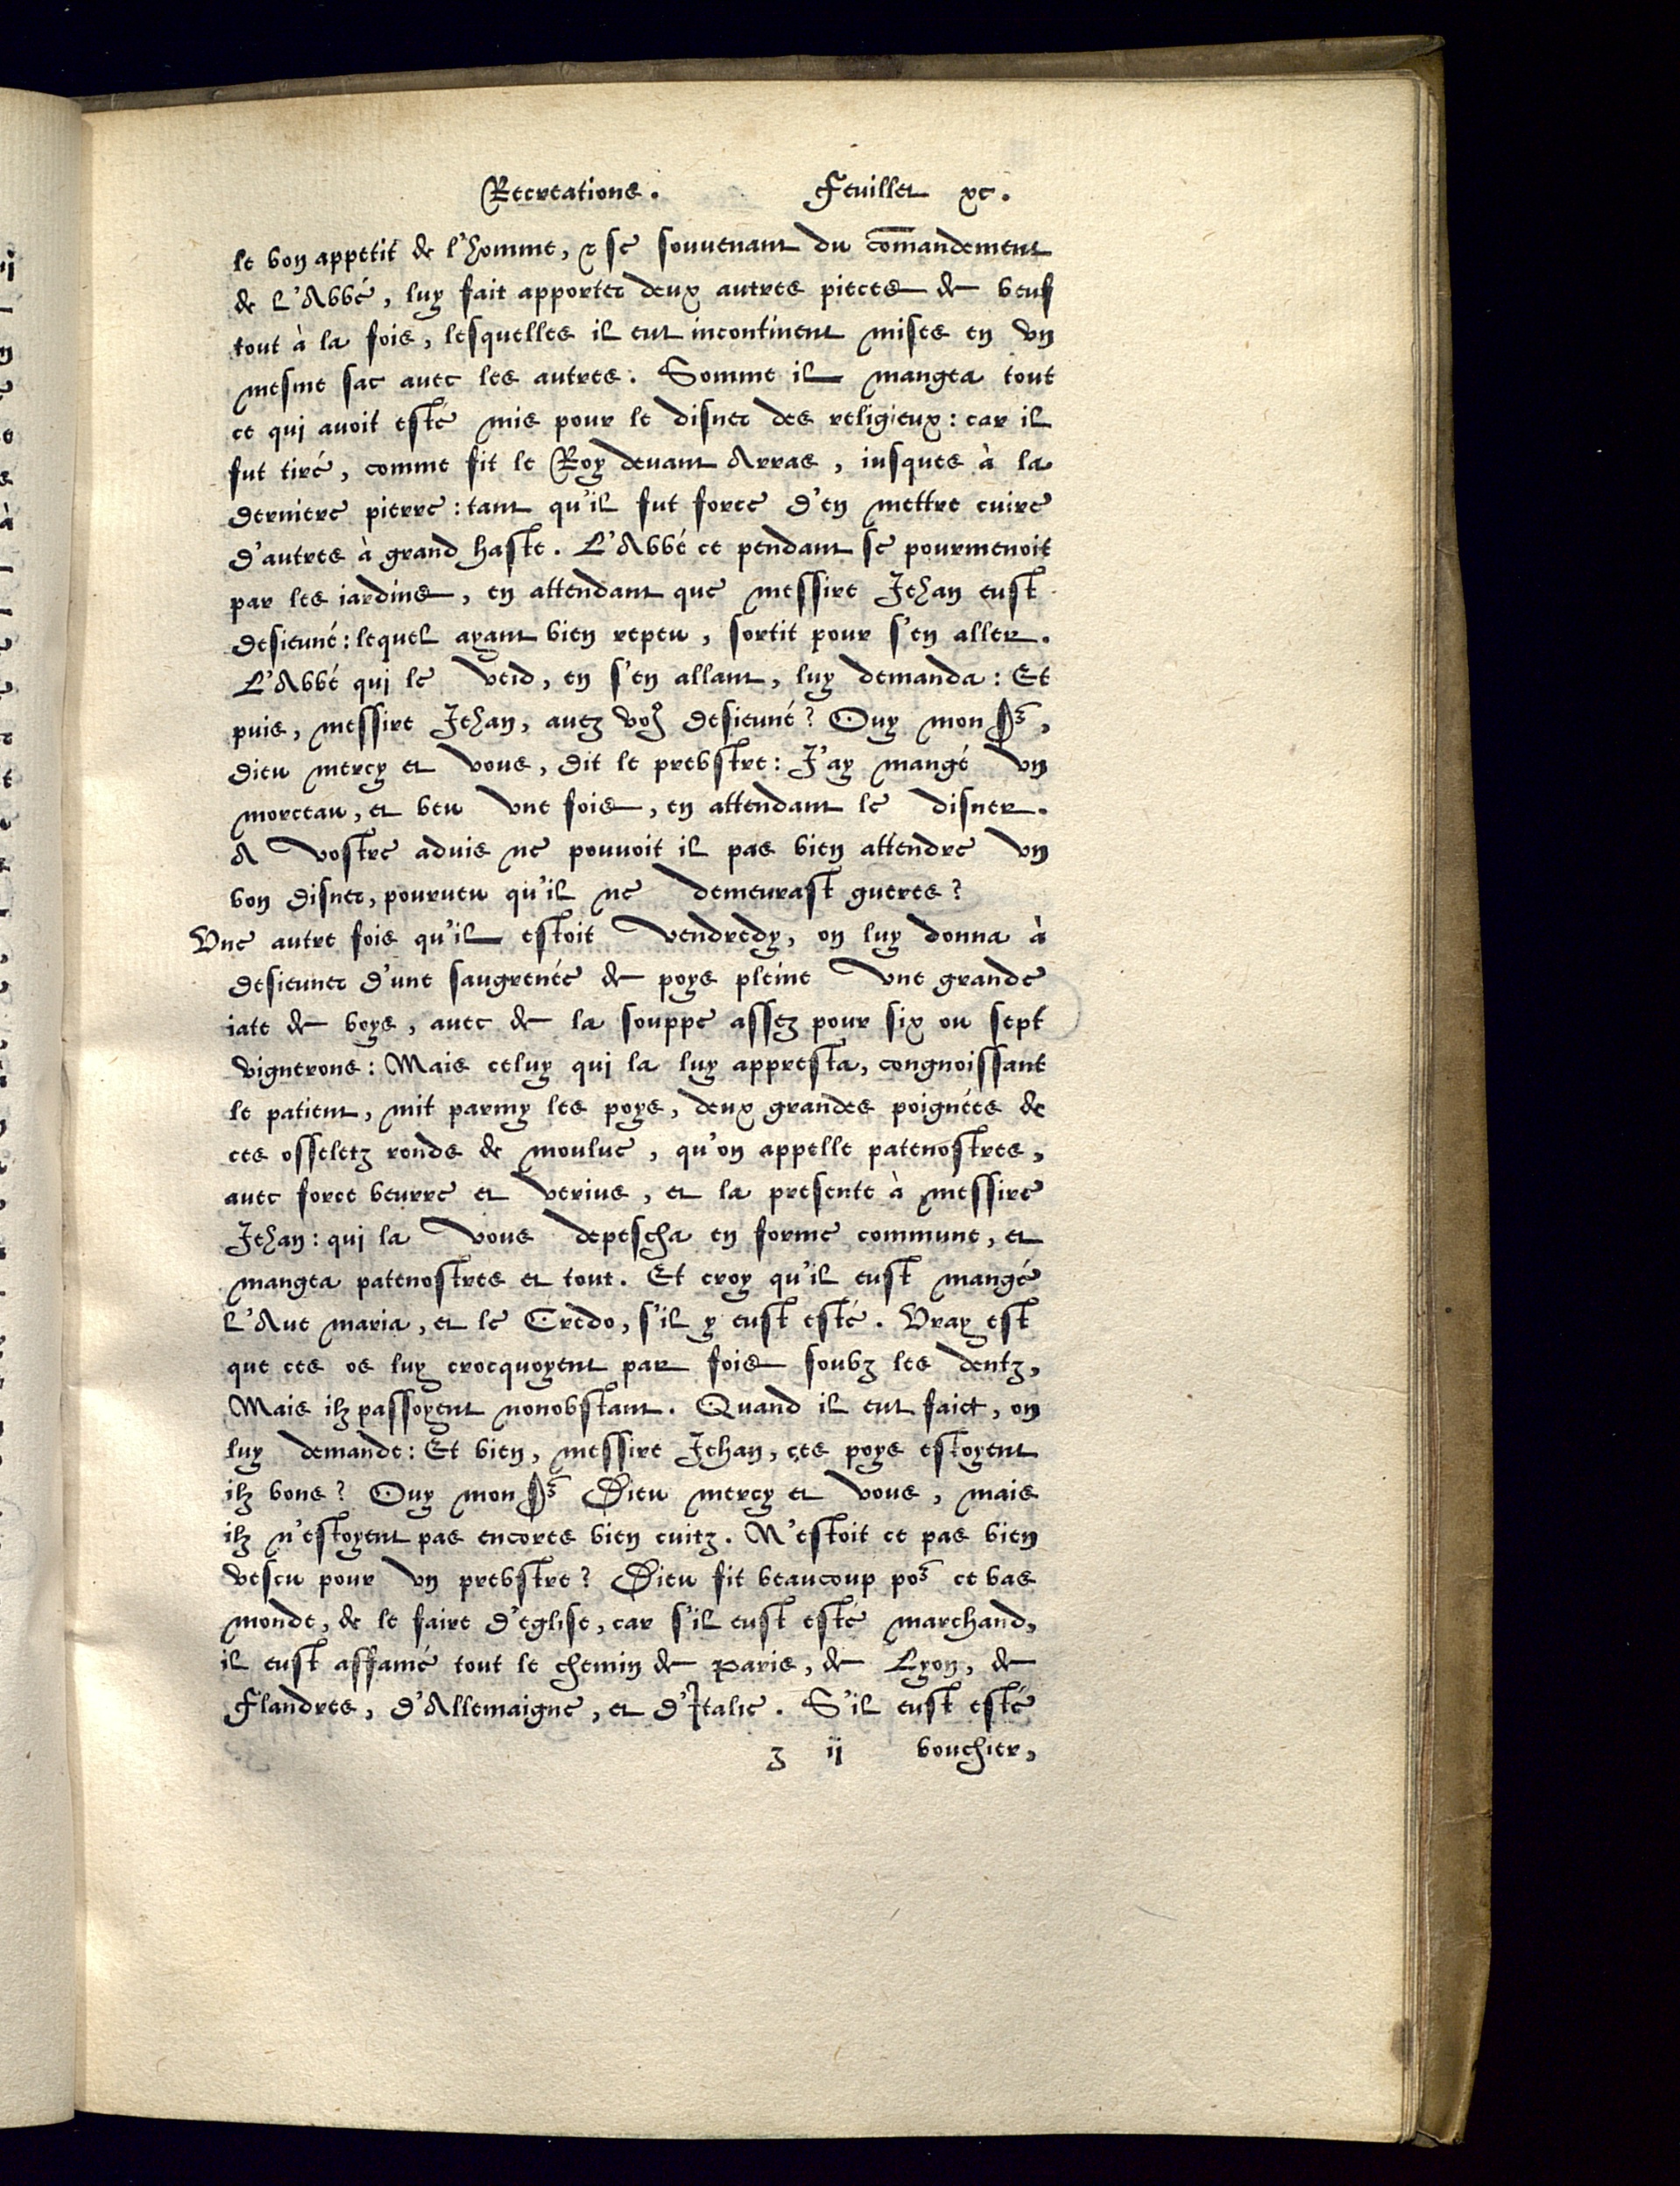 Recreations. Feuillet xc.
le bon appetit de l'homme, & se souuenant du cōmandement
de L'Abbé, luy fait apporter deux autres pieces de beuf
tout à la fois, lesquelles il eut incontinent mises en vn
mesme sac auec les autres. Somme il mangea tout
ce qui auoit esté mis pour le disner des religieux: car il
fut tiré, comme fit le Roy deuant Arras, iusques à la
derniere pierre: tant qu'il fut force d'en mettre cuire
d'autres à grand haste. L'Abbé ce pendant se pourmenoit
par les iardins, en attendant que messire Jehan eust
desieuné: lequel ayant bien repeu, sortit pour s'en aller.
L'Abbé qui le veid, en s'en allant, luy demanda: Et
puis, messire Jehan, auez voꝰ desieuné? Ouy monSr,
dieu mercy et vous, dit le prebstre: J'ay mangé vn
morceau, et beu vne fois, en attendant le disner.
A vostre aduis ne pouuoit il pas bien attendre vn
bon disner, pourueu qu'il ne demeurast gueres?
Vne autre fois qu'il estoit vendredy, on luy donna à
desieuner d'une saugrenée de poys pleine vne grande
iate de boys, auec de la souppe assez pour six ou sept
vignerons: Mais celuy qui la luy appresta, congnoissant
le patient, mit parmy les poys, deux grandes poignées de
ces osseletz ronds de moulue, qu'on appelle patenostres,
auec force beurre et verius, et la presente à messire
Jehan: qui la vous depescha en forme commune, et
mangea patenostres et tout. Et croy qu'il eust mangé
L'Aue maria, et le Credo, s'il y eust esté. Vray est
que ces os luy crocquoyent par fois soubz les dentz,
Mais ilz passoyent nonobstant. Quand il eut faict, on
luy demande: Et bien, messire Jehan, ces poys estoyent
ilz bons? Ouy monSr Dieu mercy et vous, mais
ilz n'estoyent pas encores bien cuitz. N'estoit ce pas bien
vescu pour vn prebstre? Dieu fit beaucoup poʳ ce bas
monde, de le faire d'eglise, car s'il eust esté marchand,
il eust affamé tout le chemin de paris, de Lyon, de
Flandres, d'Allemaigne, et d'Italie. S'il eust esté
z ij bouchier,